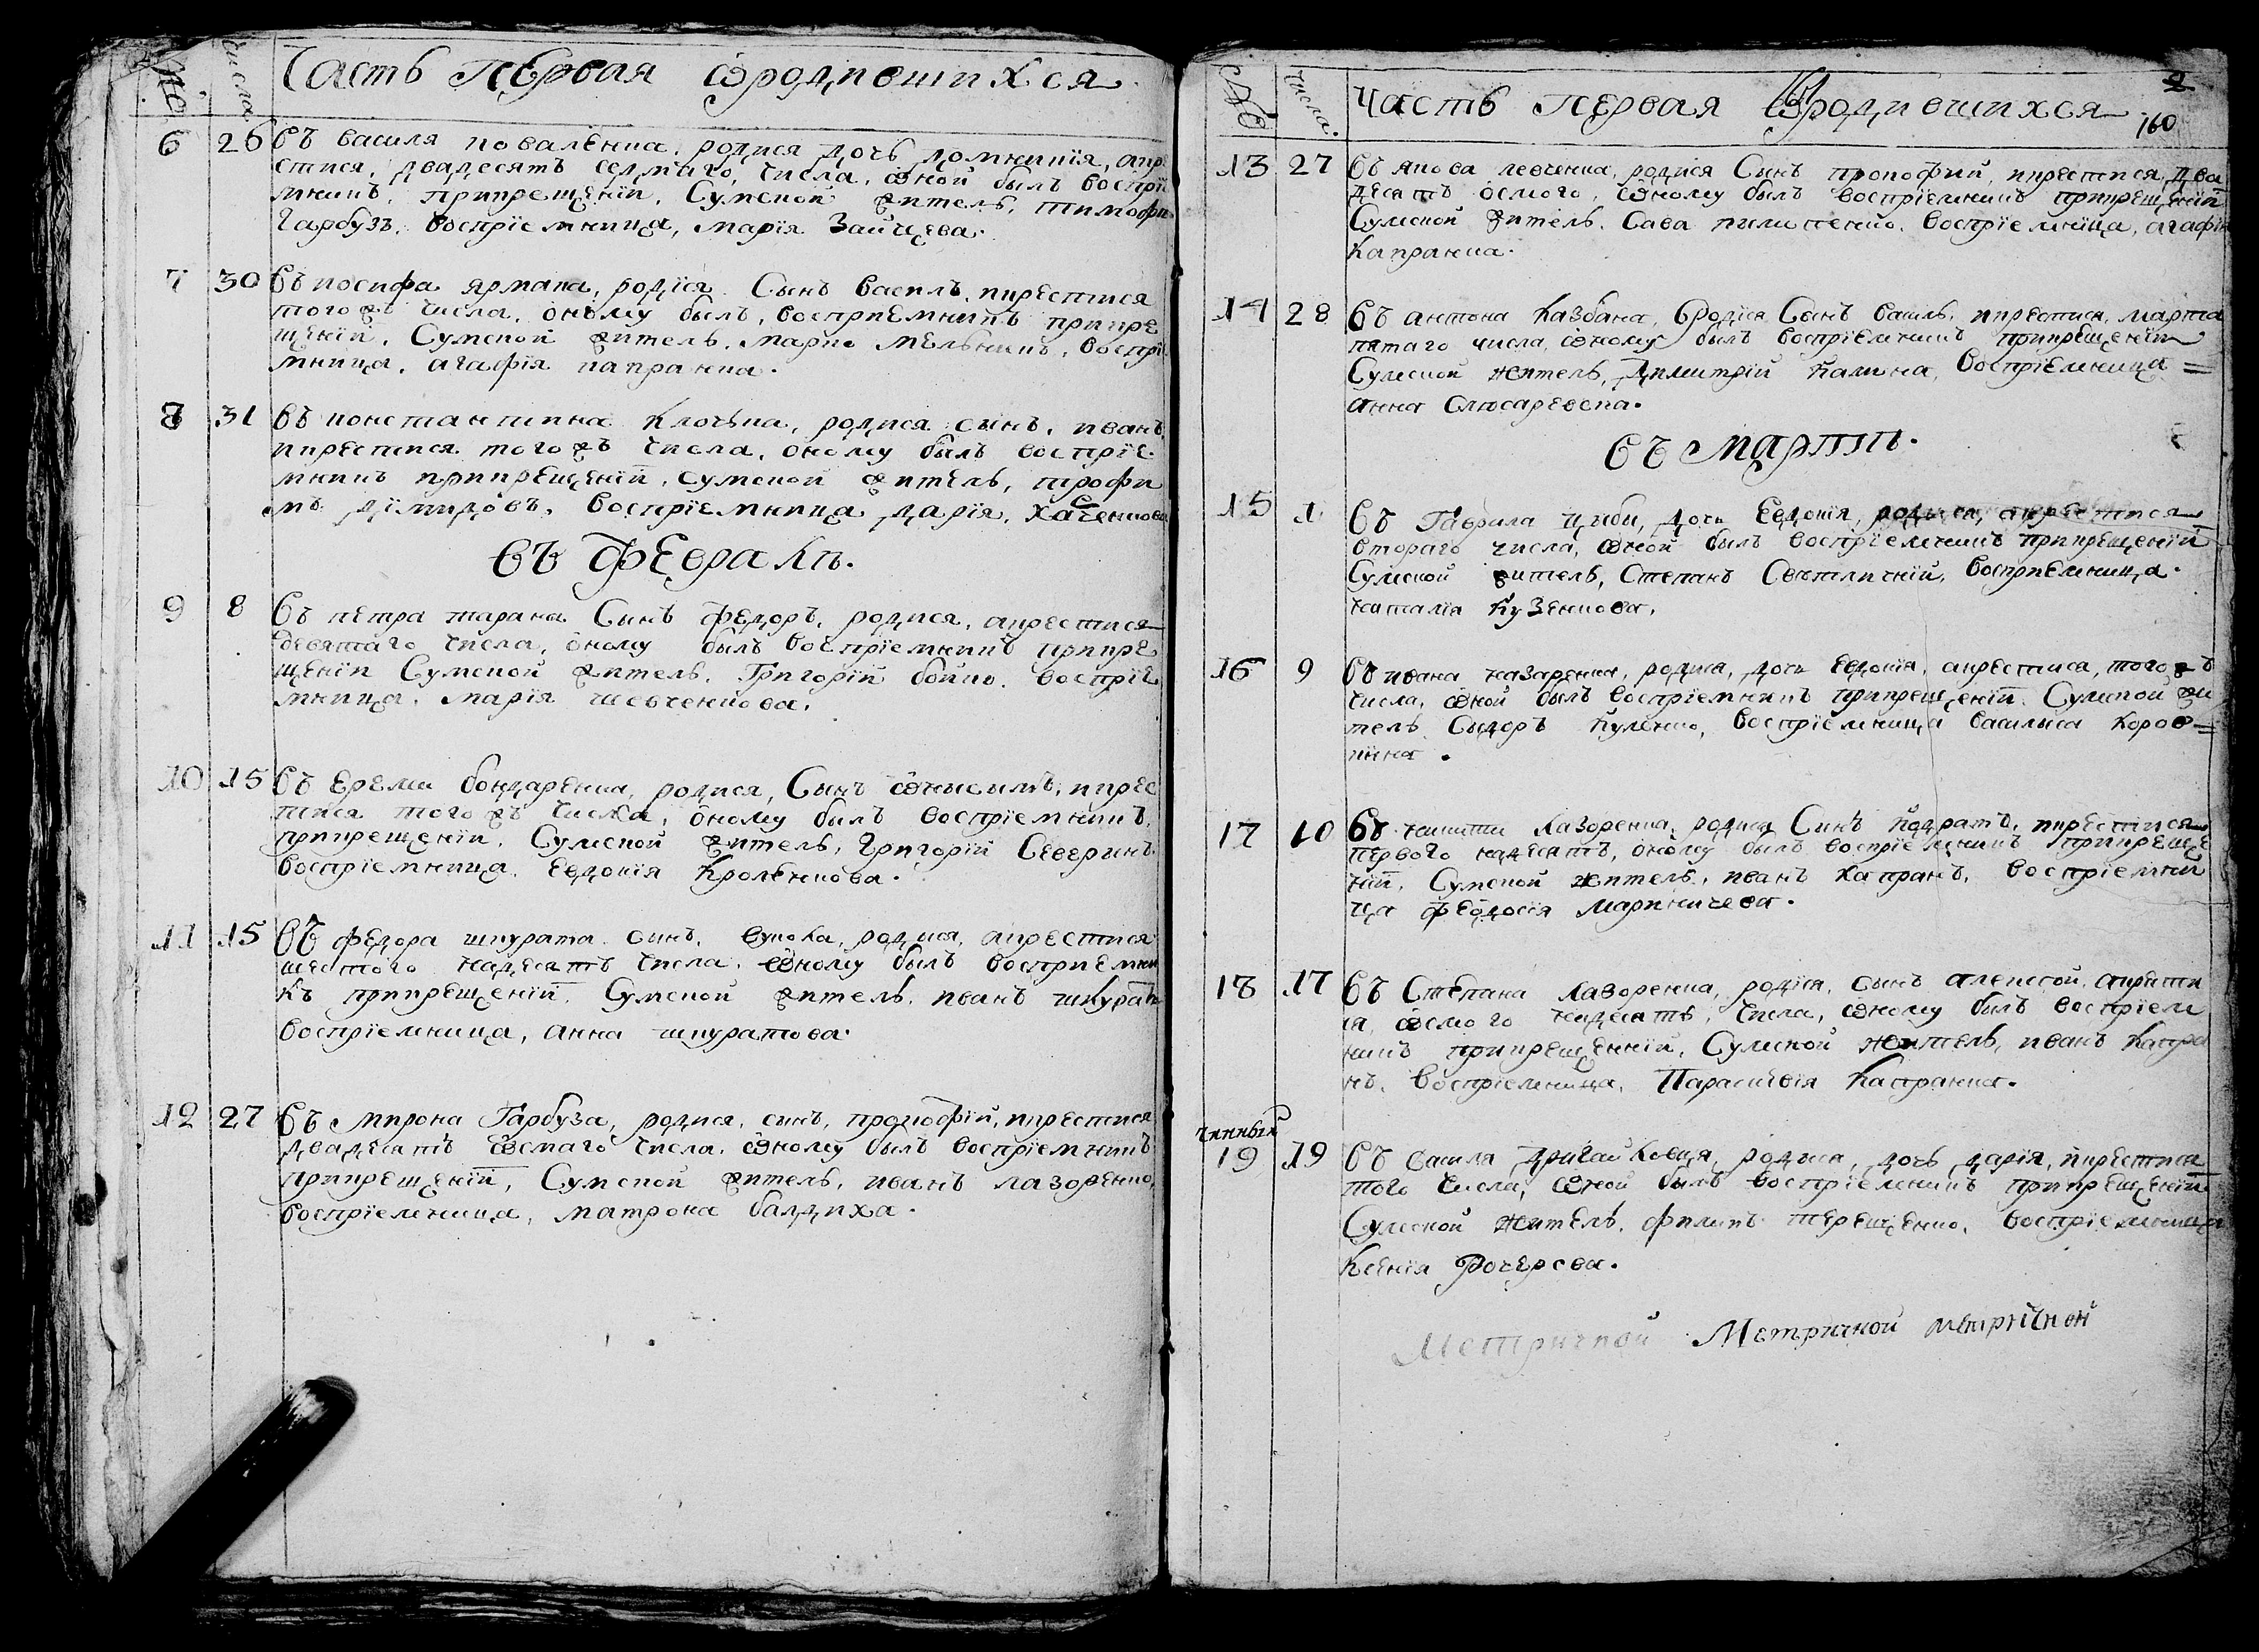 №
числа
Часть первая ѡродившихся
6 26 Въ василя коваленка, родися дочь домникїя, акре
стися, двадесятъ седмаго, числа, ѡной былъ воспрїе
мникъ, прикрещенїи, Сумской житель, тимофи
Гарбузъ, воспрїемница, марїя Зайцева.
7 30 Въ иосифа ярмака, родися Сынъ василъ, икрестися
того жъ числа, оному былъ, восприемникъ прикре
щенїи, Сумской житель, марко мельникъ, воспрїе
мница, агафїя капранка.
8 31 Въ константина Клочька, родися сынъ, иванъ,
икрестися того жъ числа, оному былъ воспрїе
мникъ прикрещенїи, сумской житель, трофи
мъ дїмидовъ, воспрїемница дарїя,
Въ Февралѣ.
9 8 Въ петра тарана Синъ федоръ, родися, акрестися
девятаго числа, оному былъ воспрїемникъ прикре
щенїи Сумской житель, Григорїй бойко, воспрїе
мница, марїя шевченкова.
10 15 Въ Еремы бондаренка, родися, Сынъ ѡнысимъ, икрес
тися того жъ числа, оному былъ воспрїемникъ,
прикрещенїи, Сумской житель, григорїй Северинъ
воспрїемница, Евдокїя Кроленкова.
11 15 Въ федора шкурата синъ, родися, акрестися
шестого надесятъ числа, ѡному былъ восприемни
къ прикрещенїи, Сумской житель, иванъ шкуратъ
воспрїемница, анна шкуратова.
12 27 Въ мирона Гарбуза, родися, сынъ, прокофїй, икрестися
двадесятъ ѡсмаго числа, ѡному былъ воспрїемникъ
прикрещенїи, Сумской житель, иванъ лазоренко,
воспрїемница, матрона балдиха.
№
числа.
Часть первая ѡродившихся
2
160
13 27 Въ якова левченка, родися Сынъ прокофий, икрестися, два
десятъ осмого, ѡному былъ воспрїемникъ прикрещенїи
Сумской житель, Сава пилипенко, воспрїемница, агафїя
Капранка.
14 28 Въ антона Казбана, родїся Сынъ василь, икрестися, марта
пятаго числа, ѡному былъ воспрїемникъ прикрещенїи
Сумской житель, Димитрїй Калина, воспрїемница =
анна слюсаревска.
Въ Мартѣ.
15 1 Въ Гаврила циби, дочь Евдокїя, родися, акрестися
втораго числа, ѡной былъ воспрїемникъ прикрещенїи
Сумской житель, Степанъ Свѣтличнїй, восприемница.
наталїя Кузенкова,
16 9 Въ ивана назаренка, родися, дочь Евдокїя, акрестися, того жъ
числа, ѡной былъ воспрїемникъ прикрещенїи Сумской жи
тель Сыдоръ Куленко, воспрїемница василиса Коров=
кїна.
17 10 Въ никити Лазоренка, родися Синъ Кодратъ, икрестися
первого надесятъ, оному былъ воспрїемникъ прикреще
нїи, Сумской житель, иванъ Капранъ, воспрїемни
ца феодосїя Мариничева.
18 17 Въ Степана Лазоренка, родїся, сынъ алексей, акрести
ся, ѡсмого надесятъ, числа, ѡному былъ воспрїем
никъ прикрещеннїи, Сумской житель, иванъ Капра
нъ, воспрїемница, Параскевїя Капранка.
19 19 Въ василя родися, дочь дарїя, икрестися
того числа, ѡной былъ воспрїемникъ прикрещенїи
Сумской житель, филипъ терещенко, воспрїемница
Ксенїя
Метричной Метричной метричной